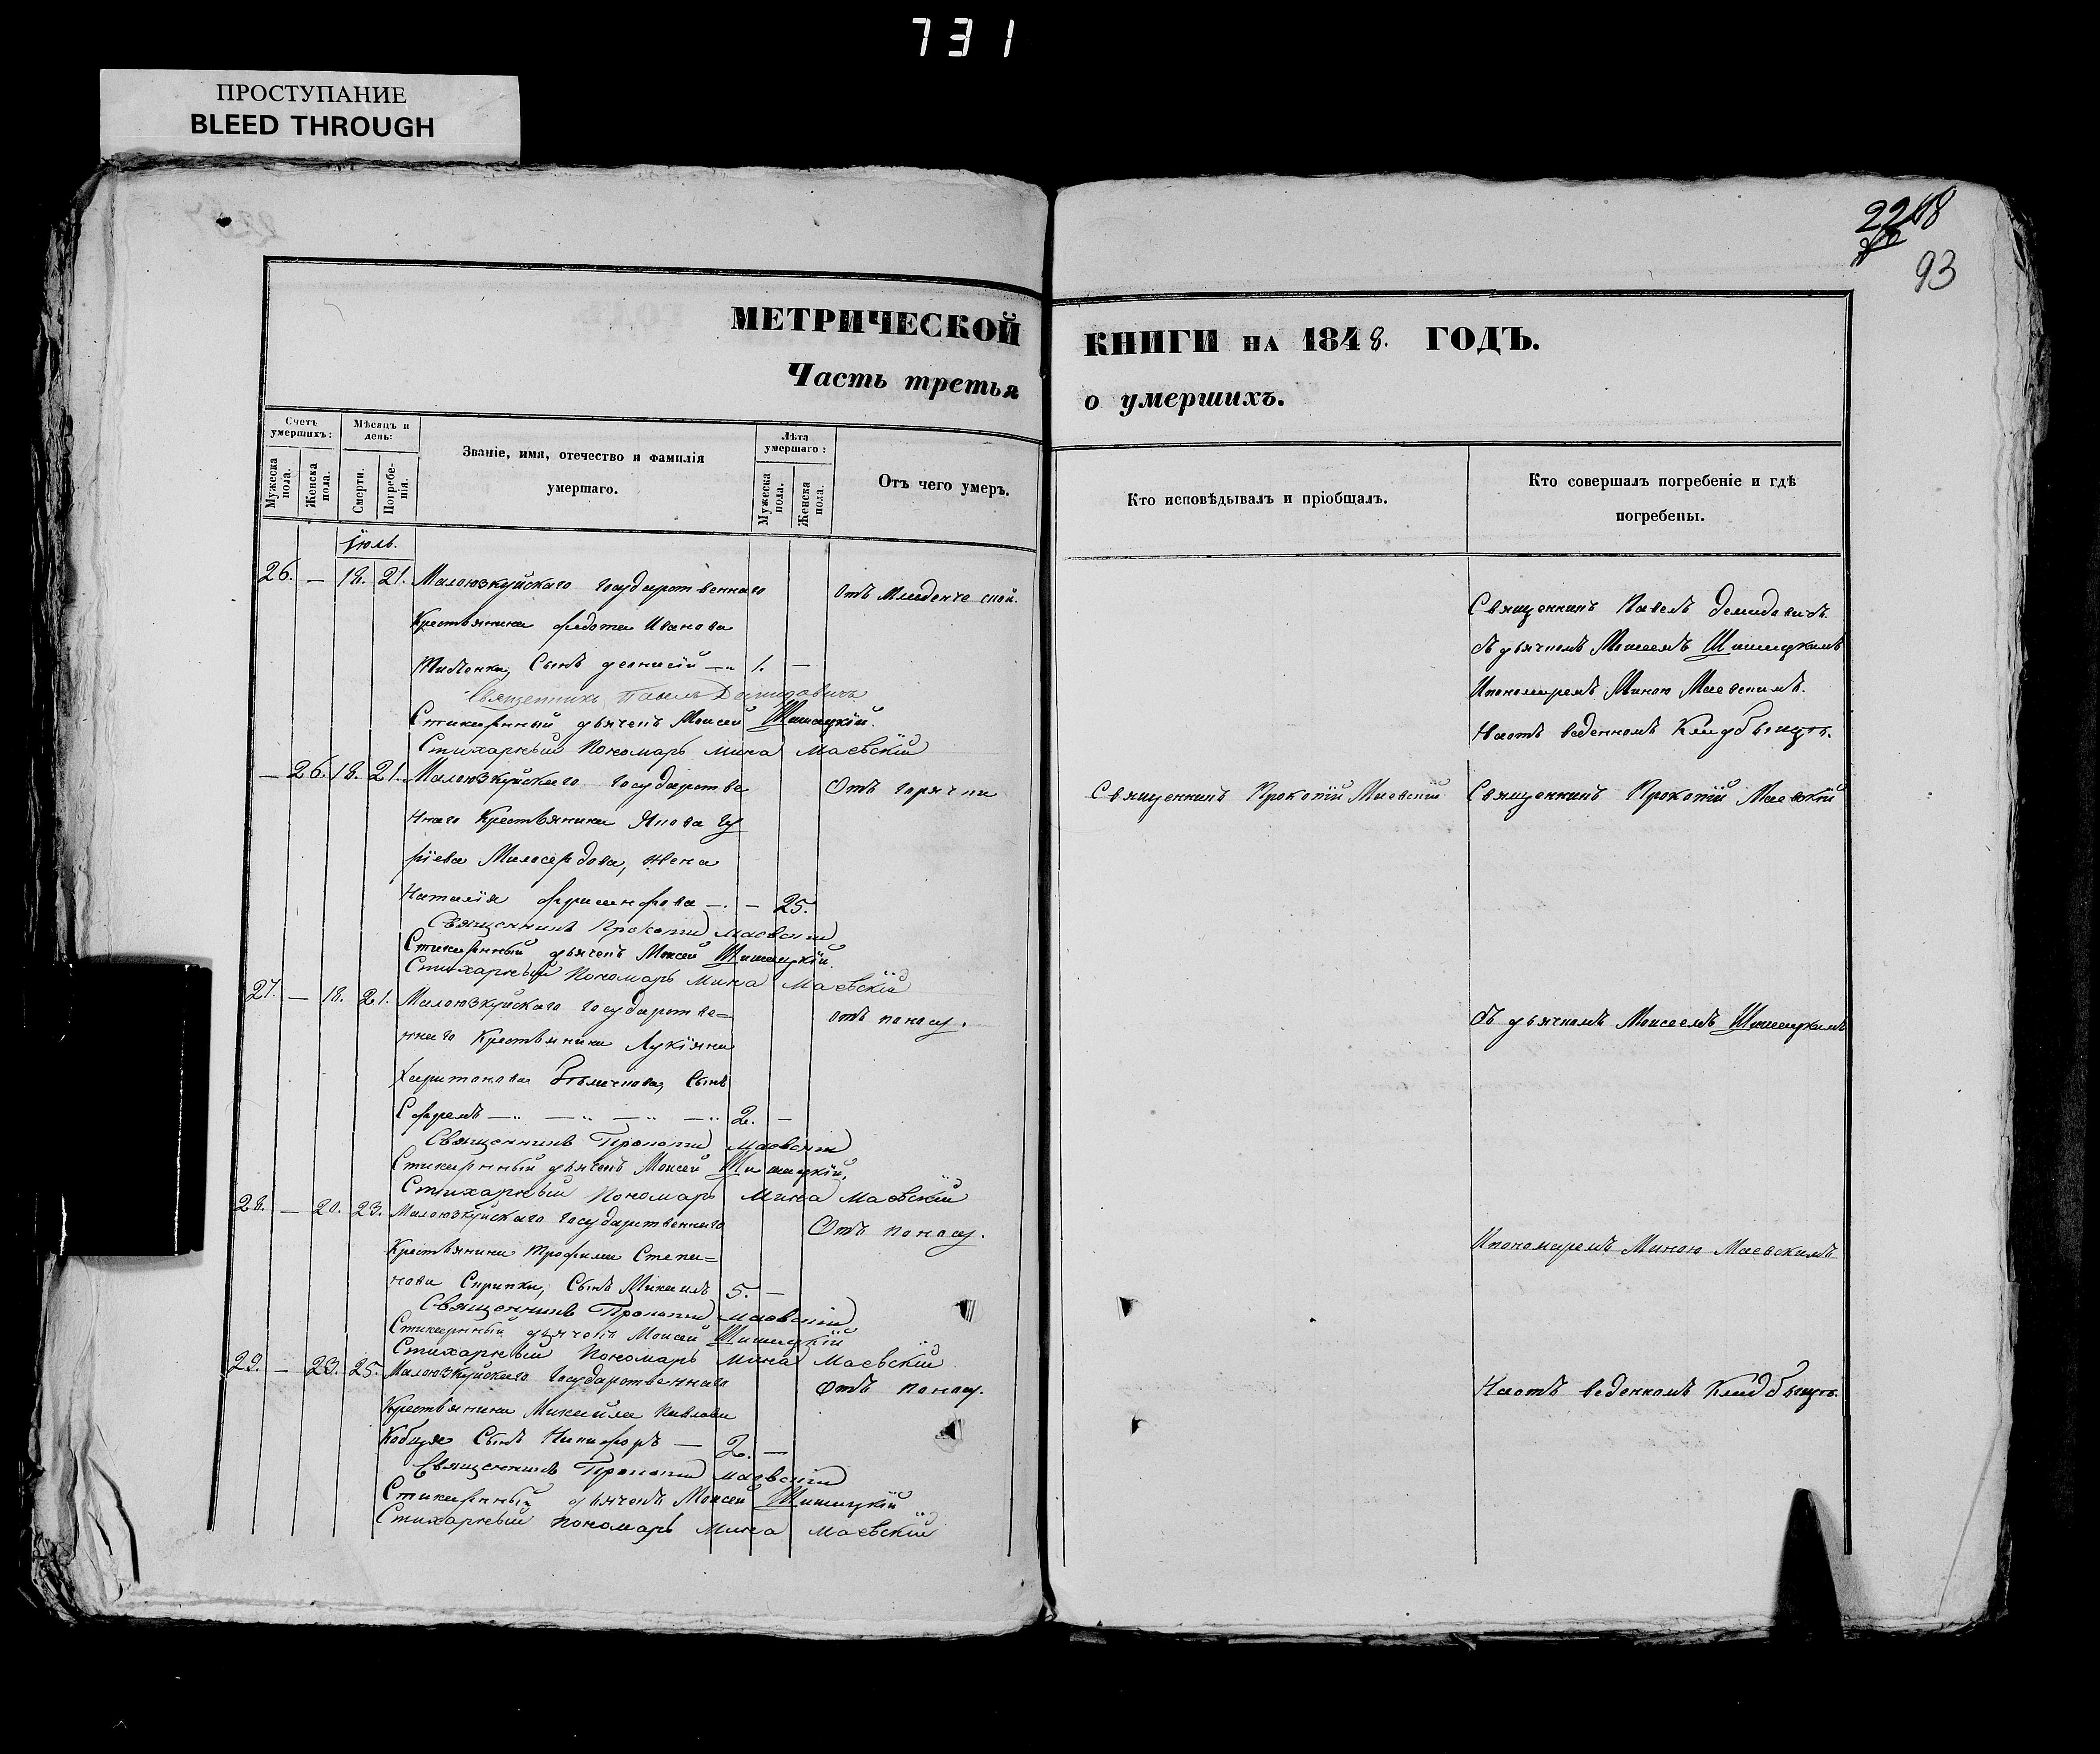 731
ПРОСТУПАНИЕ
BLEED THROUGH
93
МЕТРИЧЕСКОЙ
Часть третья
Счетъ умершихъ:
Мужеска пола.
Женска пола.
Мѣсяцъ и день:
Смерти.
Погребе-нія.
Званіе, имя, отечество и фамилія
умершаго.
Лѣта умершаго:
Мужеска пола.
Женска пола.
Отъ чего умеръ.
Іюль.
26. — 18. 21. Малоюзкуйскаго государственнаго
Отъ младенческой.
Крестьянина Федота Иванова
Сынъ Деонисій — 1. —
Священникъ Павелъ Демидовичъ
Стихарный дьячекъ Моисей Шишацкій.
Стихарный Пономарь Мина Маевскій
— 26. 18. 21. Малоюзкуйскаго государстве
Отъ горячки
ннаго Крестьянина Якова Гу
ріева Милосердова, жена
Наталія — 25.
Священникъ Прокопій Маевскій
Стихарный дьячекъ Моисей Шишацкій.
Стихарный Пономарь Мина Маевскій
27. — 18. 21. Малоюзкуйскаго государстве=
отъ поносу.
ннаго Крестьянина Лукіяна
Харитонова Сынъ
Ефремъ — — — — 2. —
Священникъ Прокопій Маевскій
Стихарный дьячекъ Моисей Шишацкій.
Стихарный Пономарь Мина Маевскій
28. — 20. 23. Малоюзкуйскаго государственнаго
Отъ поносу.
Крестьянина Трофима Степа=
нова Скрипки, Сынъ Михаилъ 5. —
Священникъ Прокопій Маевскій
Стихарный дьячекъ Моисей Шишацкій
Стихарный Пономарь Мина Маевскій
29. — 23. 25. Малоюзкуйскаго государственнаго
Отъ поносу.
Крестьянина Михайла Павлова
Кобця Сынъ Никифоръ — 2. —
Священникъ Прокопій Маевскій
Стихарный дьячекъ Моисей Шишацкій
Стихарный Пономарь Мина Маевскій
КНИГИ НА 1848. ГОДЪ.
о умершихъ.
Кто исповѣдывалъ и пріобщалъ.
Кто совершалъ погребеніе и гдѣ
погребены.
Священникъ Павелъ Демидовичъ.
съ дьячкомъ Моисеемъ Шишацкимъ
Ипономаремъ Миною Маевскимъ.
На отведенномъ Кладбыщѣ.
Священникъ Прокопій Маевскій
Священникъ Прокопій Маевскій
съ дьячкомъ Моисеемъ Шишацкимъ
Ипономаремъ Миною Маевскимъ
На отведенномъ Кладбыщѣ.